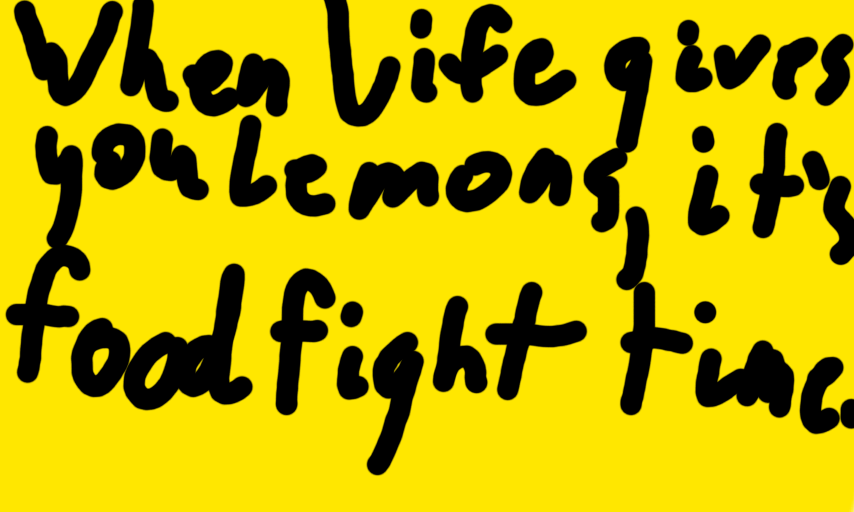 When life gives
you lemons, it's
food fight time.